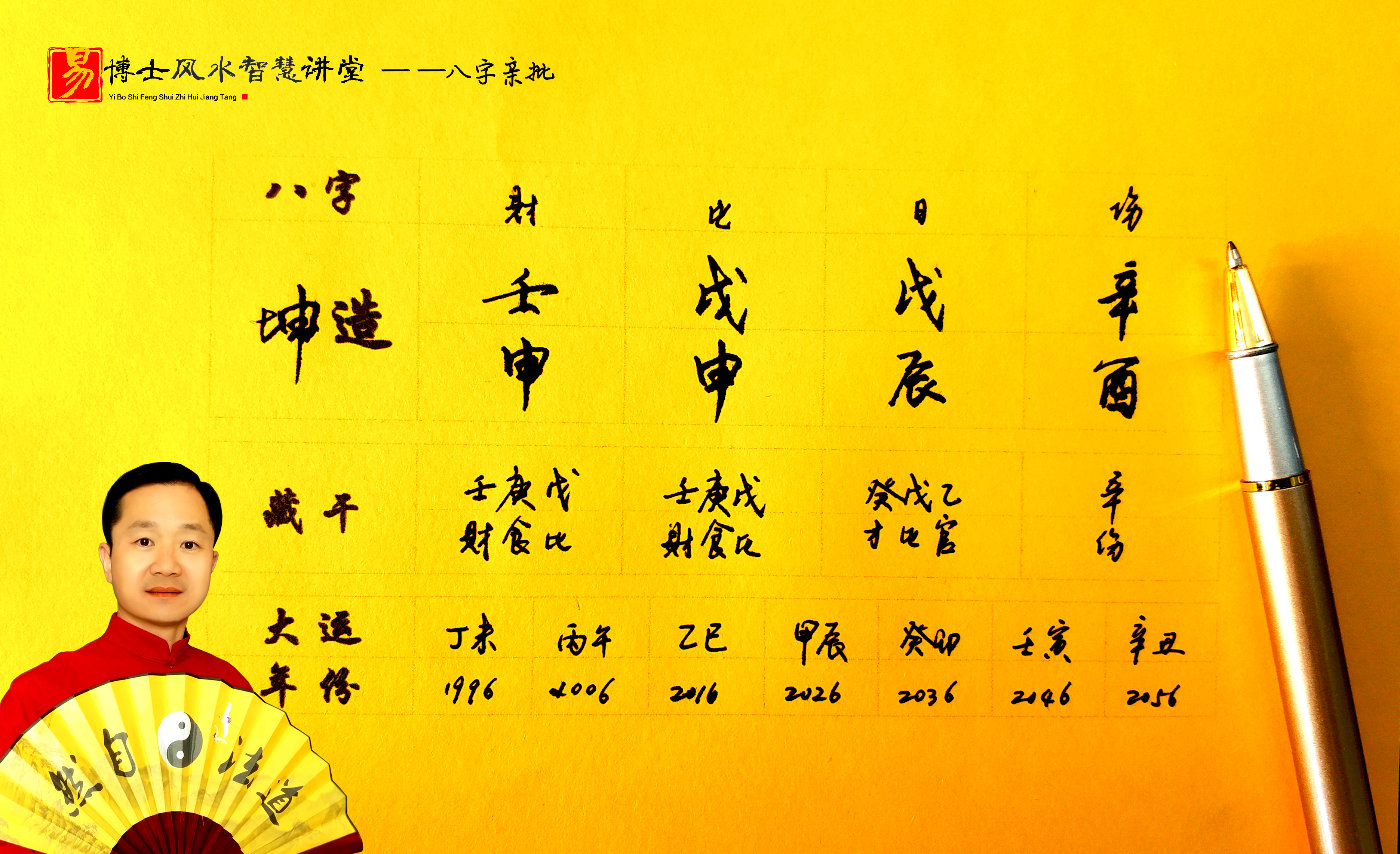 易 博士风水智慧讲堂 ——八字亲批
Yi Bo Shi Feng Shui Zhi Hui Jiang Tang
八字 财 比 日 伤
坤造 壬 戊 戊 辛
申 申 辰 酉
藏干 壬庚戊 壬庚戊 癸戊乙 辛
财食比 财食比 才比官 伤
大运 丁未 丙午 乙巳 甲辰 癸卯 壬寅 辛丑
年份 1996 2006 2016 2026 2036 2046 2056
然自法道